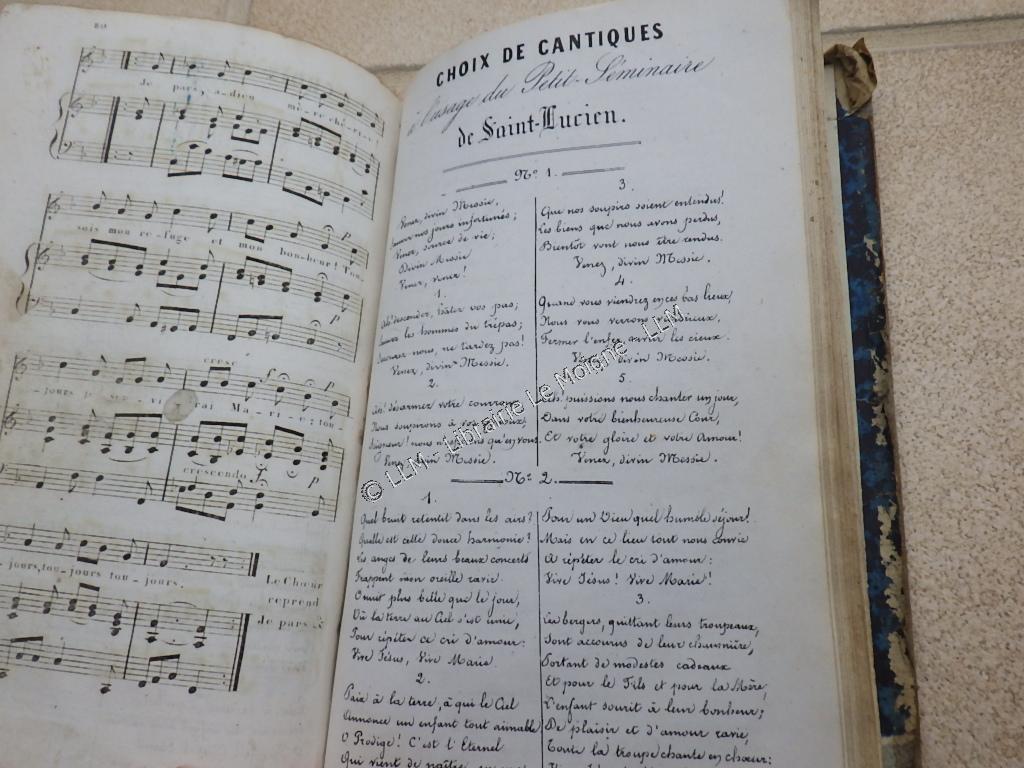 80
Je pars, a-dieu mè-re ché-ri-e,
sois mon re-fuge et mon bon-heur! Tou-
cresc
-jours je se-vi-rai Ma-ri-e; tou-
crescendo.
-jours, tou-jours tou-jours.
Le Chœur
reprend
Je pars &
CHOIX DE CANTIQUES
à l'usage du Petit-Séminaire
de Saint-Lucien.
N° 1.
Venez, divin Messie,
Sauver nos jours infortunés;
Venez, source de vie;
Divin Messie
Venez, venez!
1.
Ah! descendez, hâtez vos pas;
Sauvez les hommes du trépas;
Secourez-nous, ne tardez pas!
Venez, divin Messie.
2.
Ah! désarmez votre courroux
Nous soupirons à vos genoux;
Seigneur! nous n'espérons qu'en vous.
Venez, divin Messie.
3.
Que nos soupirs soient entendus!
Les biens que nous avons perdus,
Bientôt vont nous être rendus.
Venez, divin Messie.
4.
Quand vous viendrez en ces bas lieux,
Nous vous verrons victorieux,
Fermer l'enfer, ouvrir les cieux.
Venez, divin Messie.
5.
Ah! puissions nous chanter un jour,
Dans votre bienheureuse Cour,
Et votre gloire et votre Amour!
Venez, divin Messie.
N° 2.
1.
Quel bruit retentit dans les airs?
Quelle est cette douce harmonie?
Les anges de leurs beaux concerts
Frappent mon oreille ravie.
O nuit plus belle que le jour,
Où la terre au Ciel s'est unie,
Pour répéter ce cri d'amour:
Vive Jésus, Vive Marie.
2.
Paix à la terre, à qui le Ciel
Annonce un enfant tout aimable
O Prodige! C'est l'Eternel
Qui vient de naître
Pour un Dieu quel humble séjour!
Mais en ce lieu tout nous convie
A répéter le cri d'amour:
Vive Jésus! Vive Marie!
3.
Les bergers, quittant leurs troupeaux,
Sont accourus de leur chaumière,
Portant de modestes cadeaux
Et pour le Fils et pour la Mère,
L'enfant sourit à leur bonheur;
De plaisir et d'amour ravie,
Toute la troupe chante en chœur:
© LLM - Librairie Le Moigne - LLM